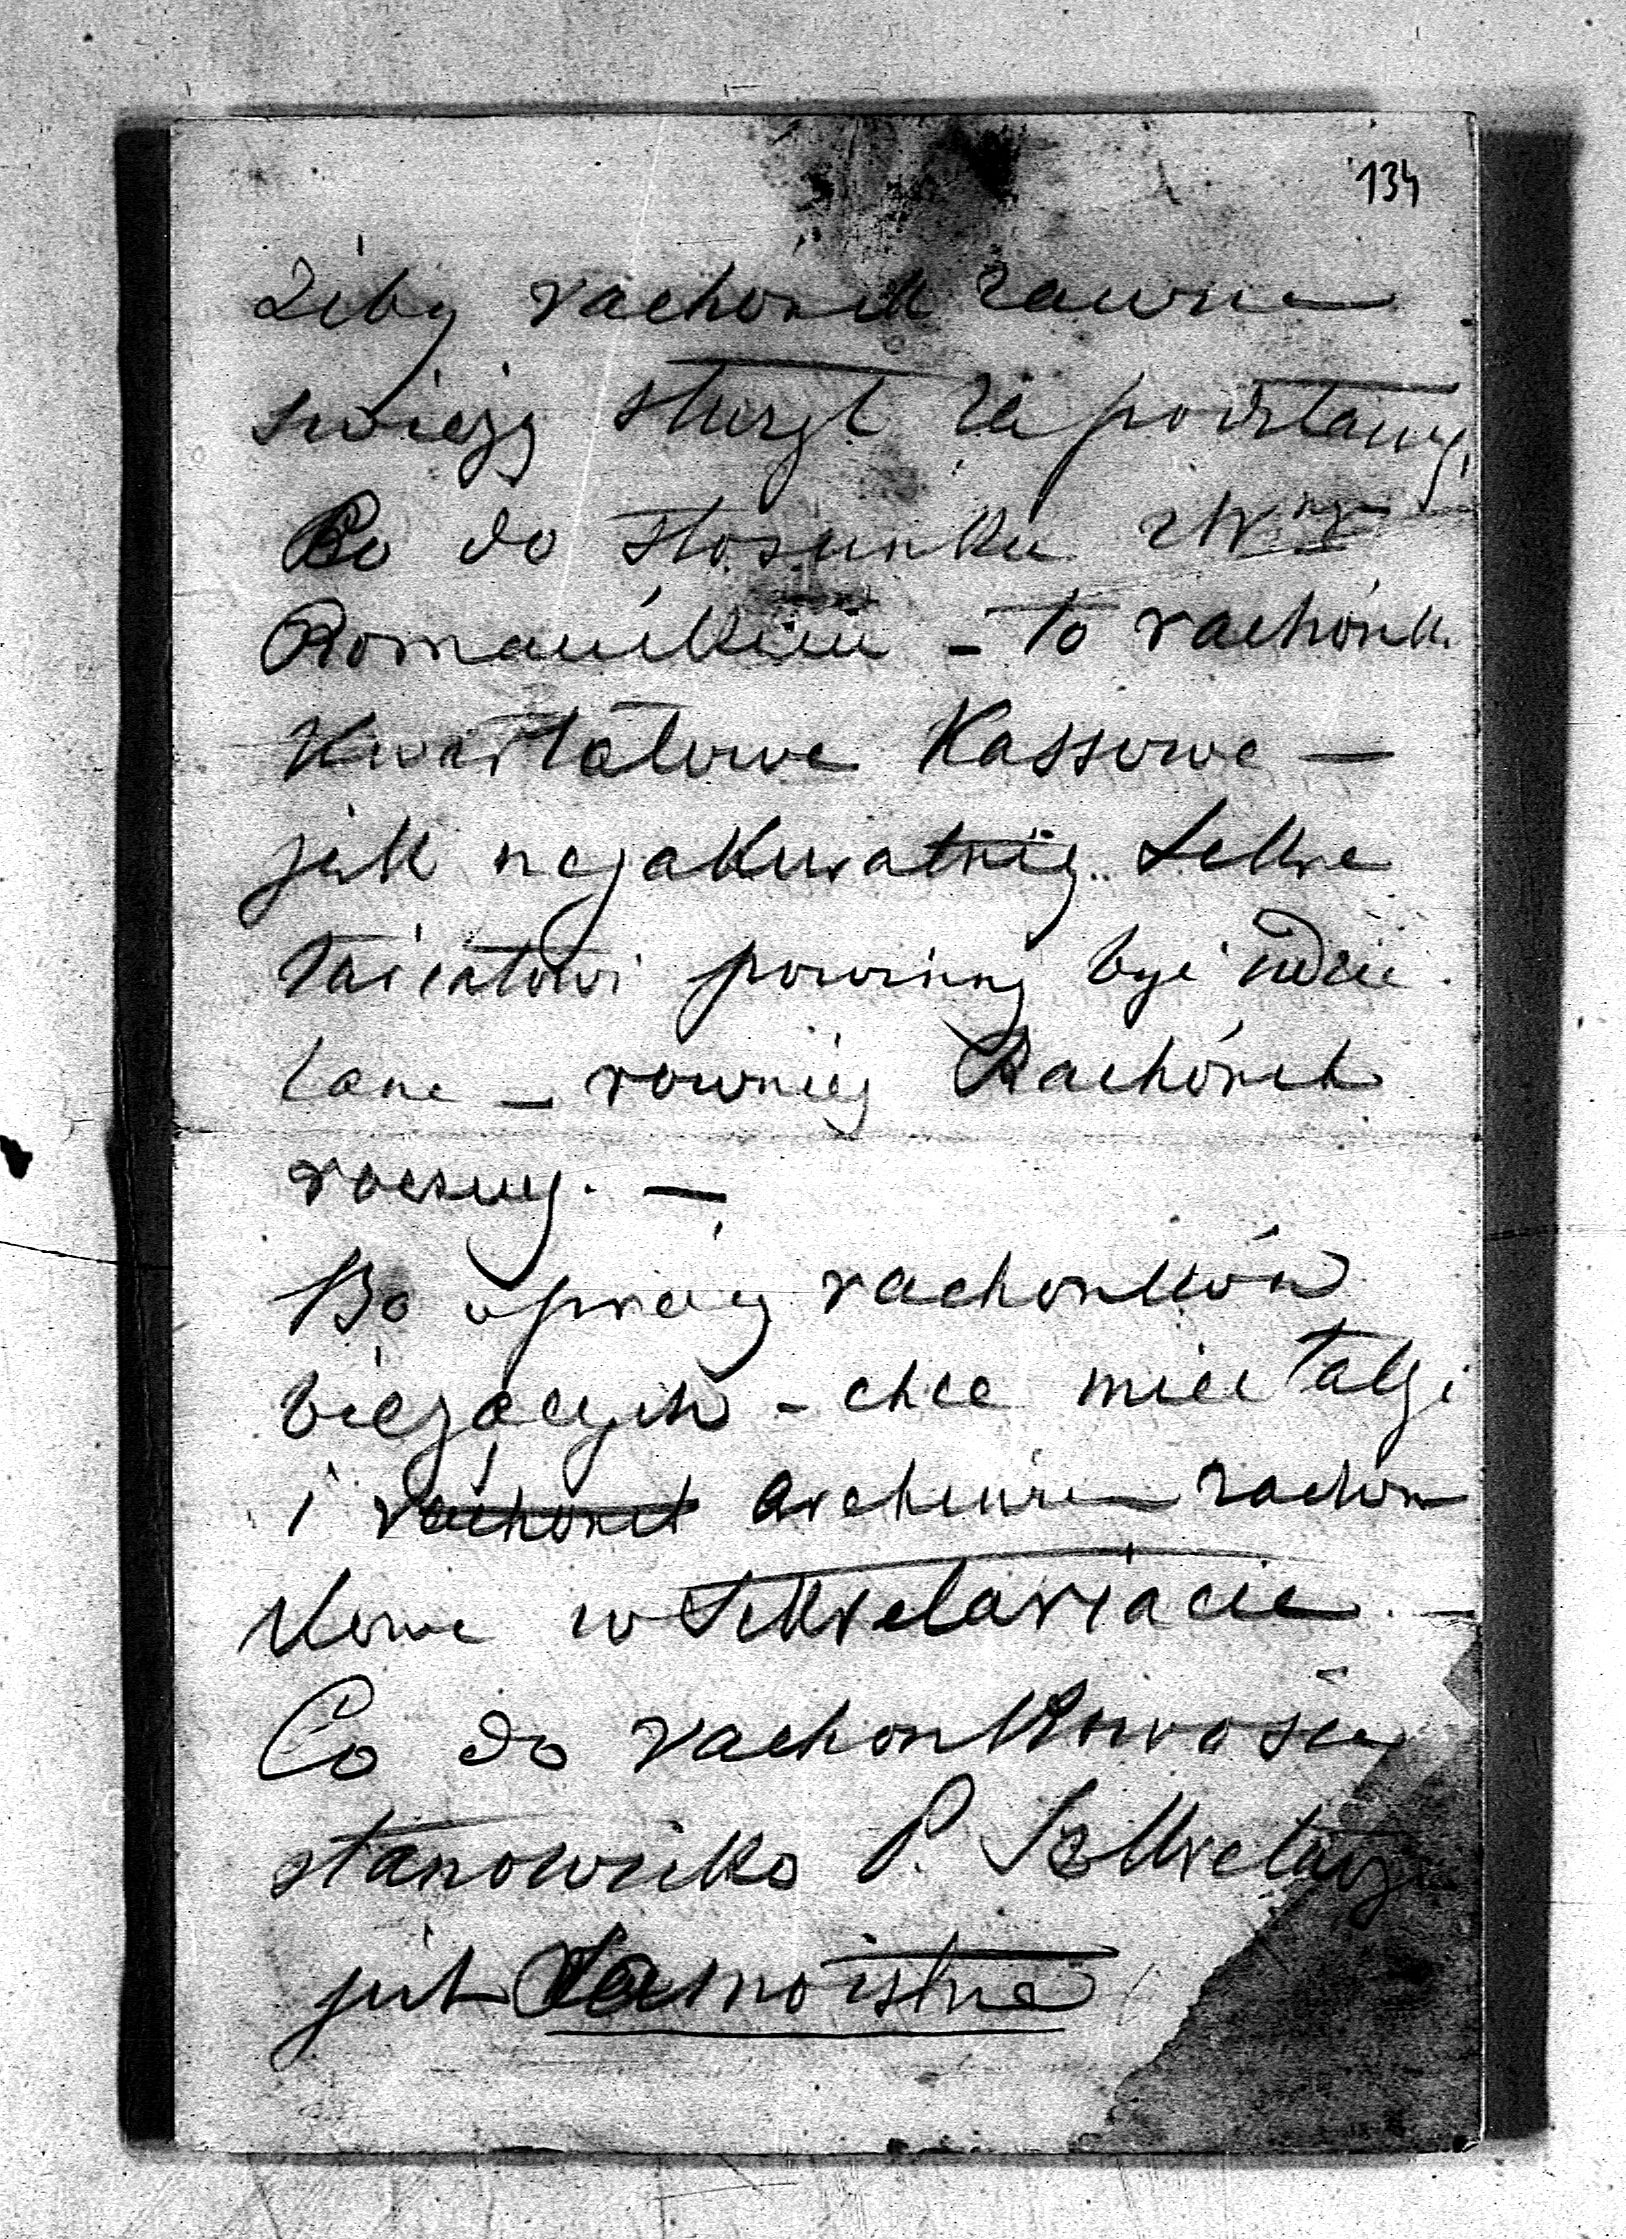 134
Żeby rachonek zawsze
świeży służył za podstawę,
Co do stosunku z
Romańskim - to rachonki
Kwartałowe Kassowe —
jak najakuratniej Sekre
tariatowi powinny być udzie
lane — rownież Rachónek
roczny. —
Bo oprócz rachonków
bieżących - chcę mieć także
i rachonek archiwum rachon
kowe w Sekretariacie. —
Co do rachonkowości
stanowisko P. Sekretarza
jest samoistne